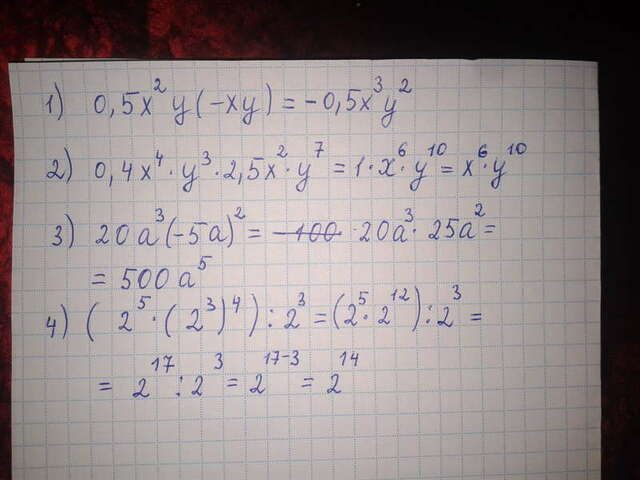 1) 0,5x²y(-xy) = -0,5x³y²
2) 0,4x⁴·y³·2,5x²·y⁷ = 1·x⁶·y¹⁰ = x⁶·y¹⁰
3) 20a³(-5a)² = ~~-100~~ · 20a³· 25a² =
= 500a⁵
4) ( 2⁵·(2³)⁴) : 2³ = (2⁵·2¹²) : 2³ =
= 2¹⁷ : 2³ = 2¹⁷⁻³ = 2¹⁴